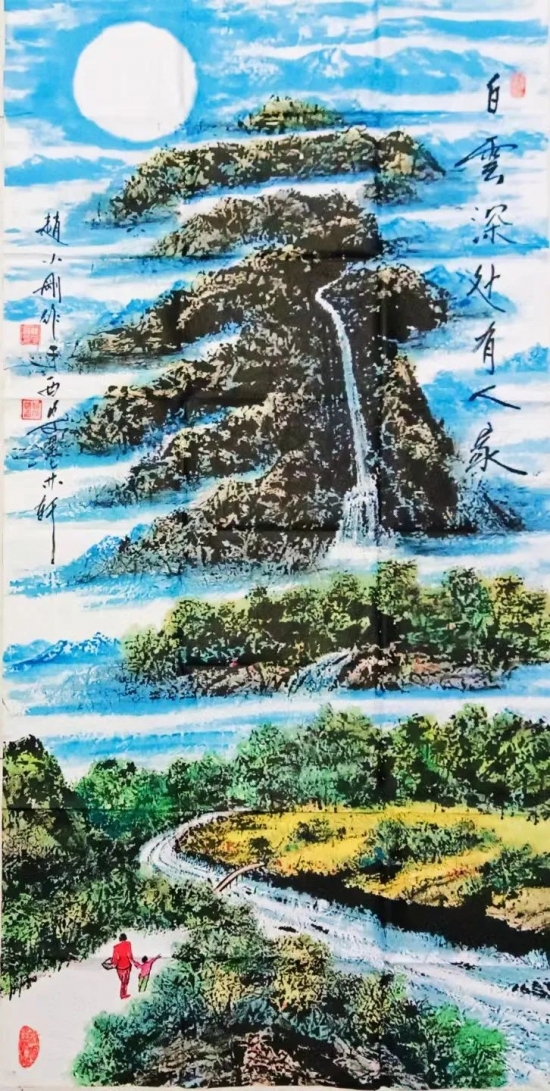 白雲深处有人家
趙小刚作于西安